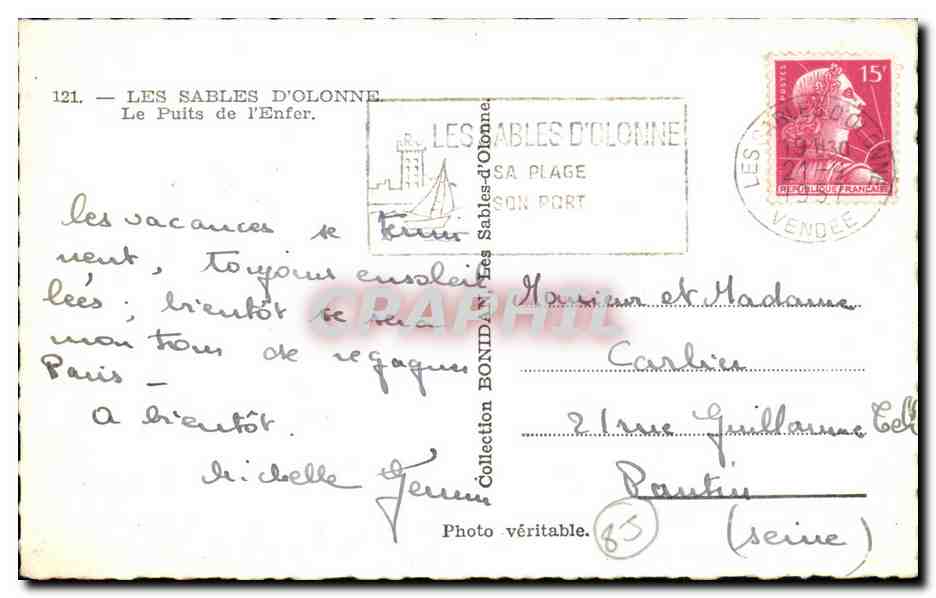 121. — LES SABLES D'OLONNE.
Le Puits de l'Enfer.
LES SABLES D'OLONNE
SA PLAGE
SON PORT
POSTES
15F
REPUBLIQUE FRANCAISE
LES SABLES D'OLONNE
19H30
21
1957
VENDEE
les vacances se termi
nent, toujours ensoleil
lées; bientôt se sera
mon tour de regagner
Paris —
A bientôt.
Michelle
Collection BONIDAN, Les Sables-d'Olonne.
CPAPHIL
Monsieur et Madame
Carlier
21 rue Guillaume Tell
Pantin
(Seine)
Photo véritable.
85